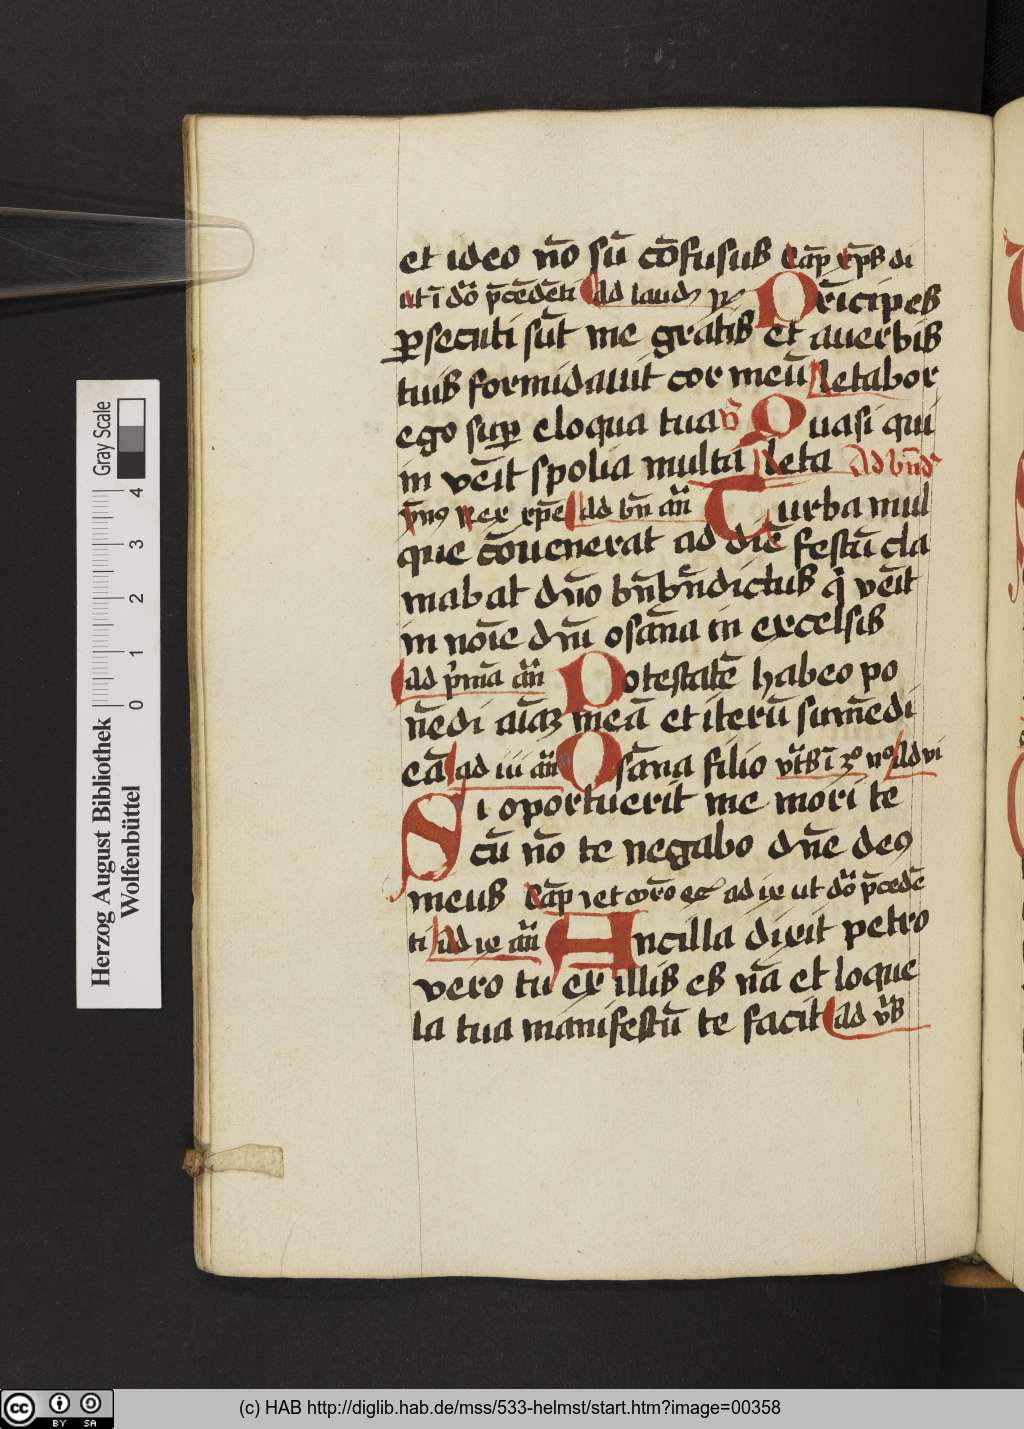 et ideo nō sū cōfusus Cap̄ xp̄s di
ut ī dō p̄cedēti Ad laud
Prīcipes
ꝑsecuti sūt me gratis et a uerbis
tuis formidauit cor meū Letabor
ego suꝑ eloqua tua v̄ Quasi qui
in veīt spolia multa Leta Ad bn̄d
ymꝰ Rex xp̄e Ad bn̄ an̄ Turba mul
que cōuenerat ad diē festū cla
mabat dn̄o bn̄dictus q̇ veīt
in noīe dn̄i osāna in excelsis
Ad p̄mā an̄ Potestatē habeo po
nēdi aīaꝫ meā et iterū sumēdi
eā ad iii an̄ Osāna filio Ad vi
Si oportuerit me mori te
cū nō te negabo dn̄e deꝰ
meus Cap̄ ut dō p̄cedē
ti Ad ix an̄ Ancilla dixit petro
vero tu ex illis es nā et loque
la tua manifestū te facit Ad v̄s
Herzog August Bibliothek
Wolfenbüttel
0 1 2 3 4
Gray Scale
cc BY SA
(c) HAB http://diglib.hab.de/mss/533-helmst/start.htm?image=00358